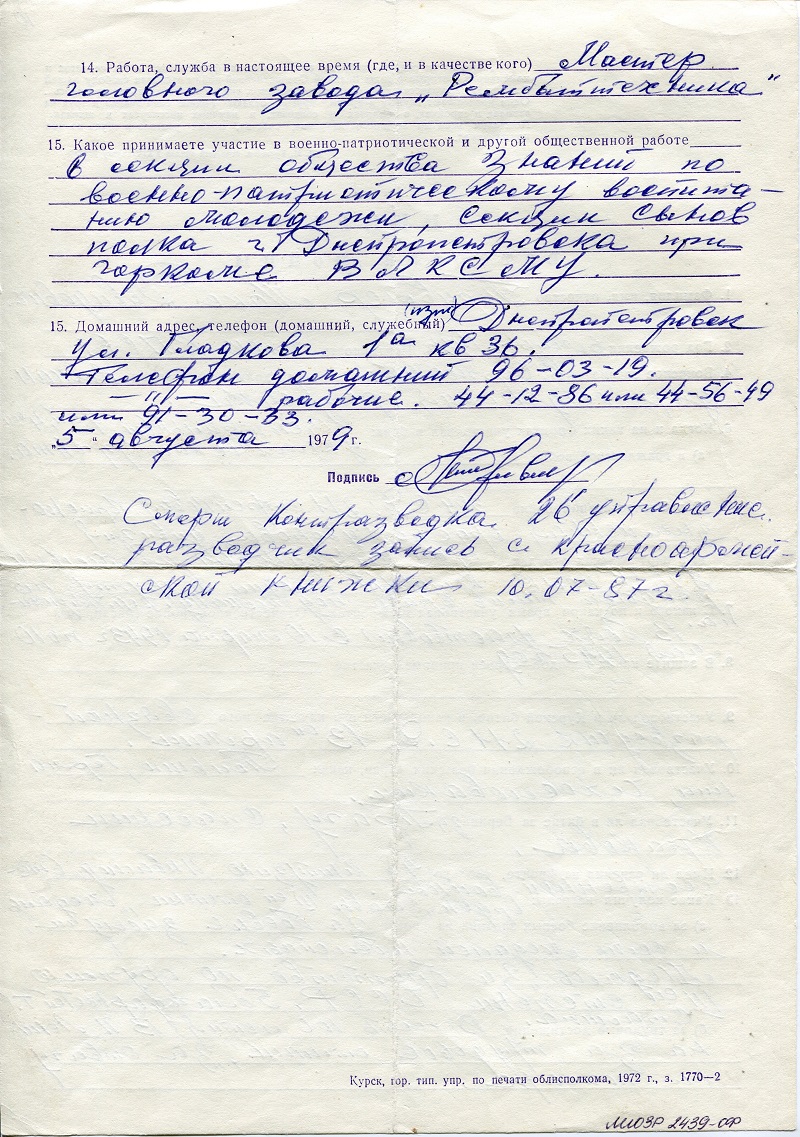 14. Работа, служба в настоящее время (где, и в качестве кого) Мастер
головного завода „Рембыттехника"
15. Какое принимаете участие в военно-патриотической и другой общественной работе
В секции общества Знаний по
военно-патриотическому воспита-
нию молодежи, секции Сынов
полка г. Днепропетровска при
горкоме ВЛКСМУ.
15. Домашний адрес, телефон (домашний, служебный) Днепропетровск
ул. Гладкова 1а кв 36.
Телефон домашний 96-03-19.
—"— рабочие. 44-12-86 или 44-56-49
или 91-30-33.
„5" августа 1979 г.
Подпись
Смерш Контразведка 26 управление.
разведчик запись с красноармей-
ской книжки 10.07-87г.
Курск, гор. тип. упр. по печати облисполкома, 1972 г., з. 1770—2
МЮЗР 2439-ОФ